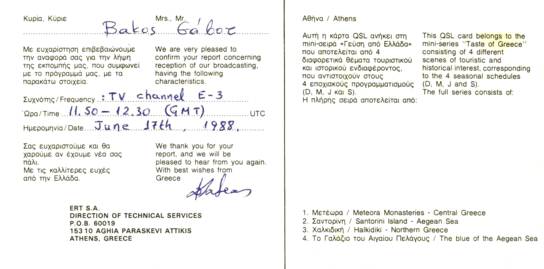 Κυρία, Κύριε
Mrs., Mr.
Bakos Gábor
Με ευχαρίστηση επιβεβαιώνουμε
την αναφορά σας για την λήψη
της εκπομπής μας, που συμφωνεί
με το πρόγραμμά μας, με τα
παρακάτω στοιχεία.
We are very pleased to
confirm your report concerning
reception of our broadcasting,
having the following
characteristics.
Συχνότης / Frequency : TV channel E-3
Ώρα / Time 11.50-12.30 (GMT) UTC
Ημερομηνία / Date June 17th, 1988.
Σας ευχαριστούμε και θα
χαρούμε αν έχουμε νέα σας
πάλι.
Με τις καλλίτερες ευχές
από την Ελλάδα.
We thank you for your
report, and we will be
pleased to hear from you again.
With best wishes from
Greece
ERT S.A.
DIRECTION OF TECHNICAL SERVICES
P.O.B. 60019
153 10 AGHIA PARASKEVI ATTIKIS
ATHENS, GREECE
Αθήνα / Athens
Αυτή η κάρτα QSL ανήκει στη
μίνι-σειρά «Γεύση από Ελλάδα»
που αποτελείται από 4
διαφορετικά θέματα τουριστικού
και ιστορικού ενδιαφέροντος,
που αντιστοιχούν στους
4 εποχιακούς προγραμματισμούς
(D, M, J και S).
Η πλήρης σειρά αποτελείται από:
This QSL card belongs to the
mini-series "Taste of Greece"
consisting of 4 different
scenes of touristic and
historical interest, corresponding
to the 4 seasonal schedules
(D, M, J and S).
The full series consists of:
1. Μετέωρα / Meteora Monasteries - Central Greece
2. Σαντορίνη / Santorini Island - Aegean Sea
3. Χαλκιδική / Halkidiki - Northern Greece
4. Το Γαλάζιο του Αιγαίου Πελάγους / The blue of the Aegean Sea